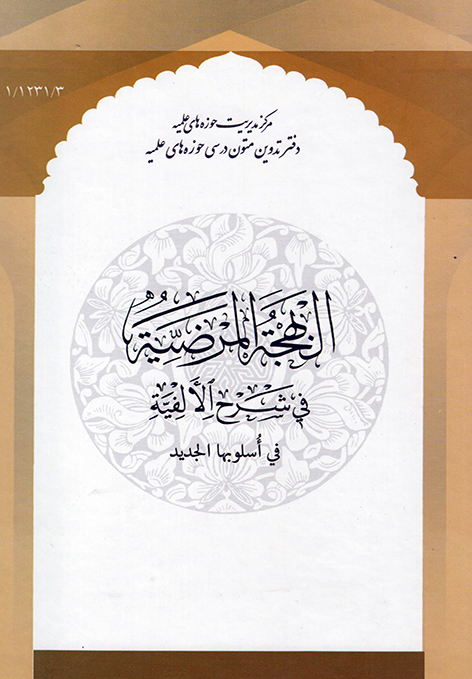 ۱/۱۲۳۱/۳
مرکز مدیریت حوزه های علمیه
دفتر تدوین متون درسی حوزه های علمیه
البَهْجَةُ المَرْضِيَّةُ
فِي شَرْحِ الأَلْفِيَّةِ
في أُسلوبها الجديد